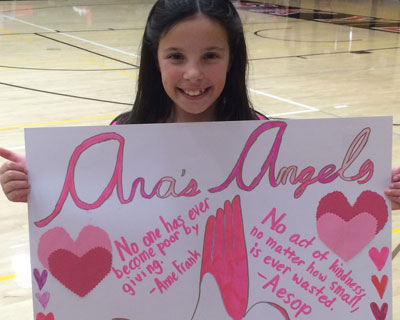 Ara's Angels
No one has ever
become poor by
giving.
-Anne Frank
No act of kindness,
no matter how small,
is ever wasted.
-Aesop